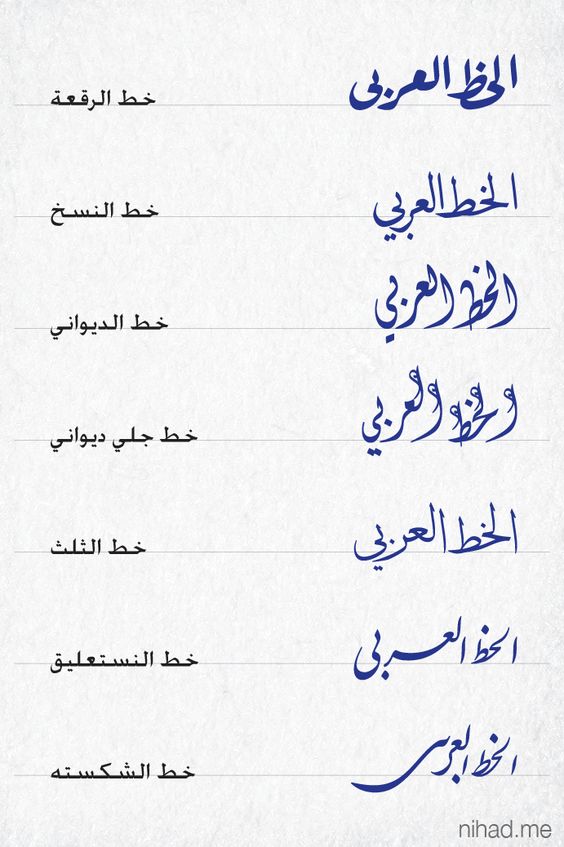 الخط العربي خط الرقعة
الخط العربي خط النسخ
الخط العربي خط الديواني
الخط العربي خط جلي ديواني
الخط العربي خط الثلث
الخط العربي خط النستعليق
الخط العربی خط الشكسته
nihad.me